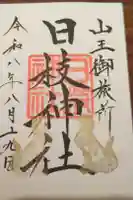 山王御旅所
日枝神社
令和八年八月十九日